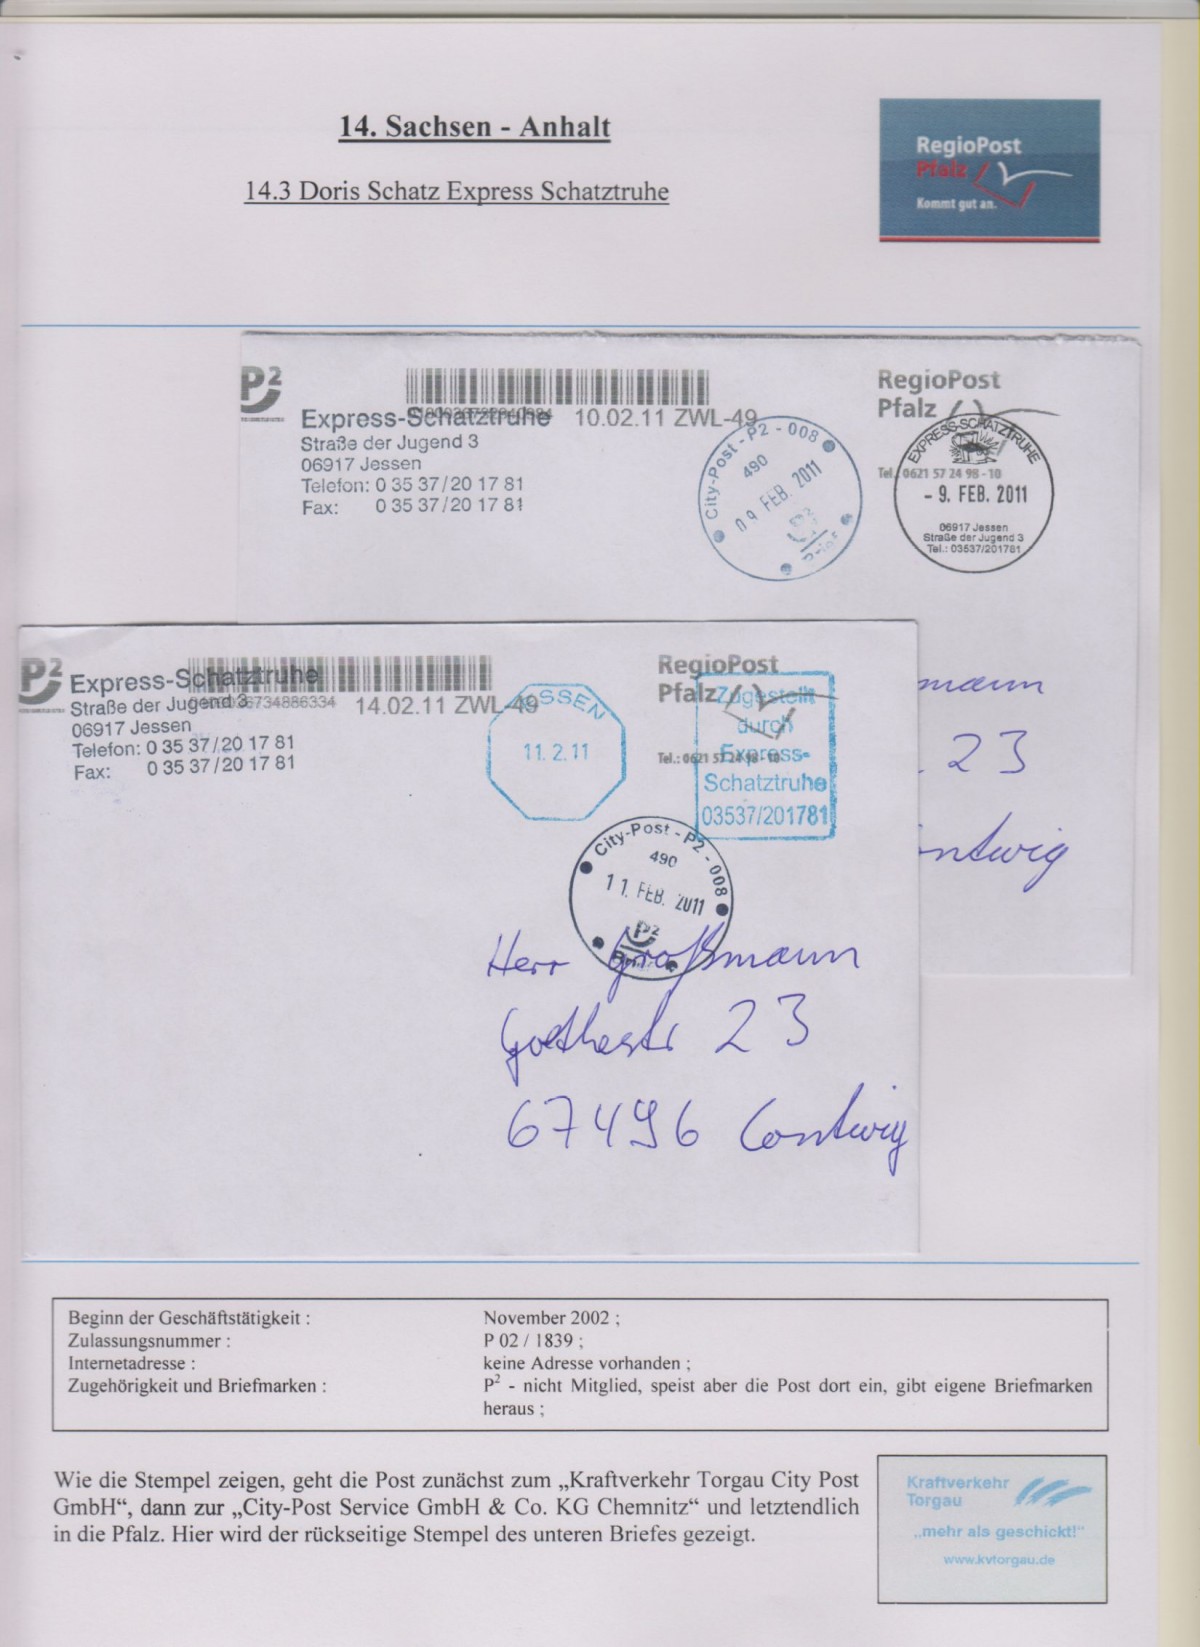 14. Sachsen - Anhalt
14.3 Doris Schatz Express Schatztruhe
RegioPost
Pfalz
Kommt gut an.
P2
Express-Schatztruhe
10.02.11 ZWL-49
Straße der Jugend 3
06917 Jessen
Telefon: 0 35 37/20 17 81
Fax: 0 35 37/20 17 81
City-Post - P2 - 008
490
09 FEB. 2011
P2
RegioPost
Pfalz
Tel.: 0621 57 24 98 - 10
EXPRESS-SCHATZTRUHE
- 9. FEB. 2011
06917 Jessen
Straße der Jugend 3
Tel.: 03537/201781
mann
23
ntwig
P2
Express-Schatztruhe
Straße der Jugend 3
14.02.11 ZWL-49
06917 Jessen
Telefon: 0 35 37/20 17 81
Fax: 0 35 37/20 17 81
JESSEN
11.2.11
RegioPost
Pfalz
Tel.: 0621 57 24 98 - 10
Zugestellt
durch
Express-
Schatztruhe
03537/201781
City-Post - P2 - 008
490
11. FEB. 2011
P2
Herr Großmann
Goethestr 23
67496 Contwig
Beginn der Geschäftstätigkeit : November 2002 ;
Zulassungsnummer : P 02 / 1839 ;
Internetadresse : keine Adresse vorhanden ;
Zugehörigkeit und Briefmarken : P2 - nicht Mitglied, speist aber die Post dort ein, gibt eigene Briefmarken
heraus ;
Wie die Stempel zeigen, geht die Post zunächst zum „Kraftverkehr Torgau City Post
GmbH“, dann zur „City-Post Service GmbH & Co. KG Chemnitz“ und letztendlich
in die Pfalz. Hier wird der rückseitige Stempel des unteren Briefes gezeigt.
Kraftverkehr
Torgau
„mehr als geschickt!“
www.kvtorgau.de